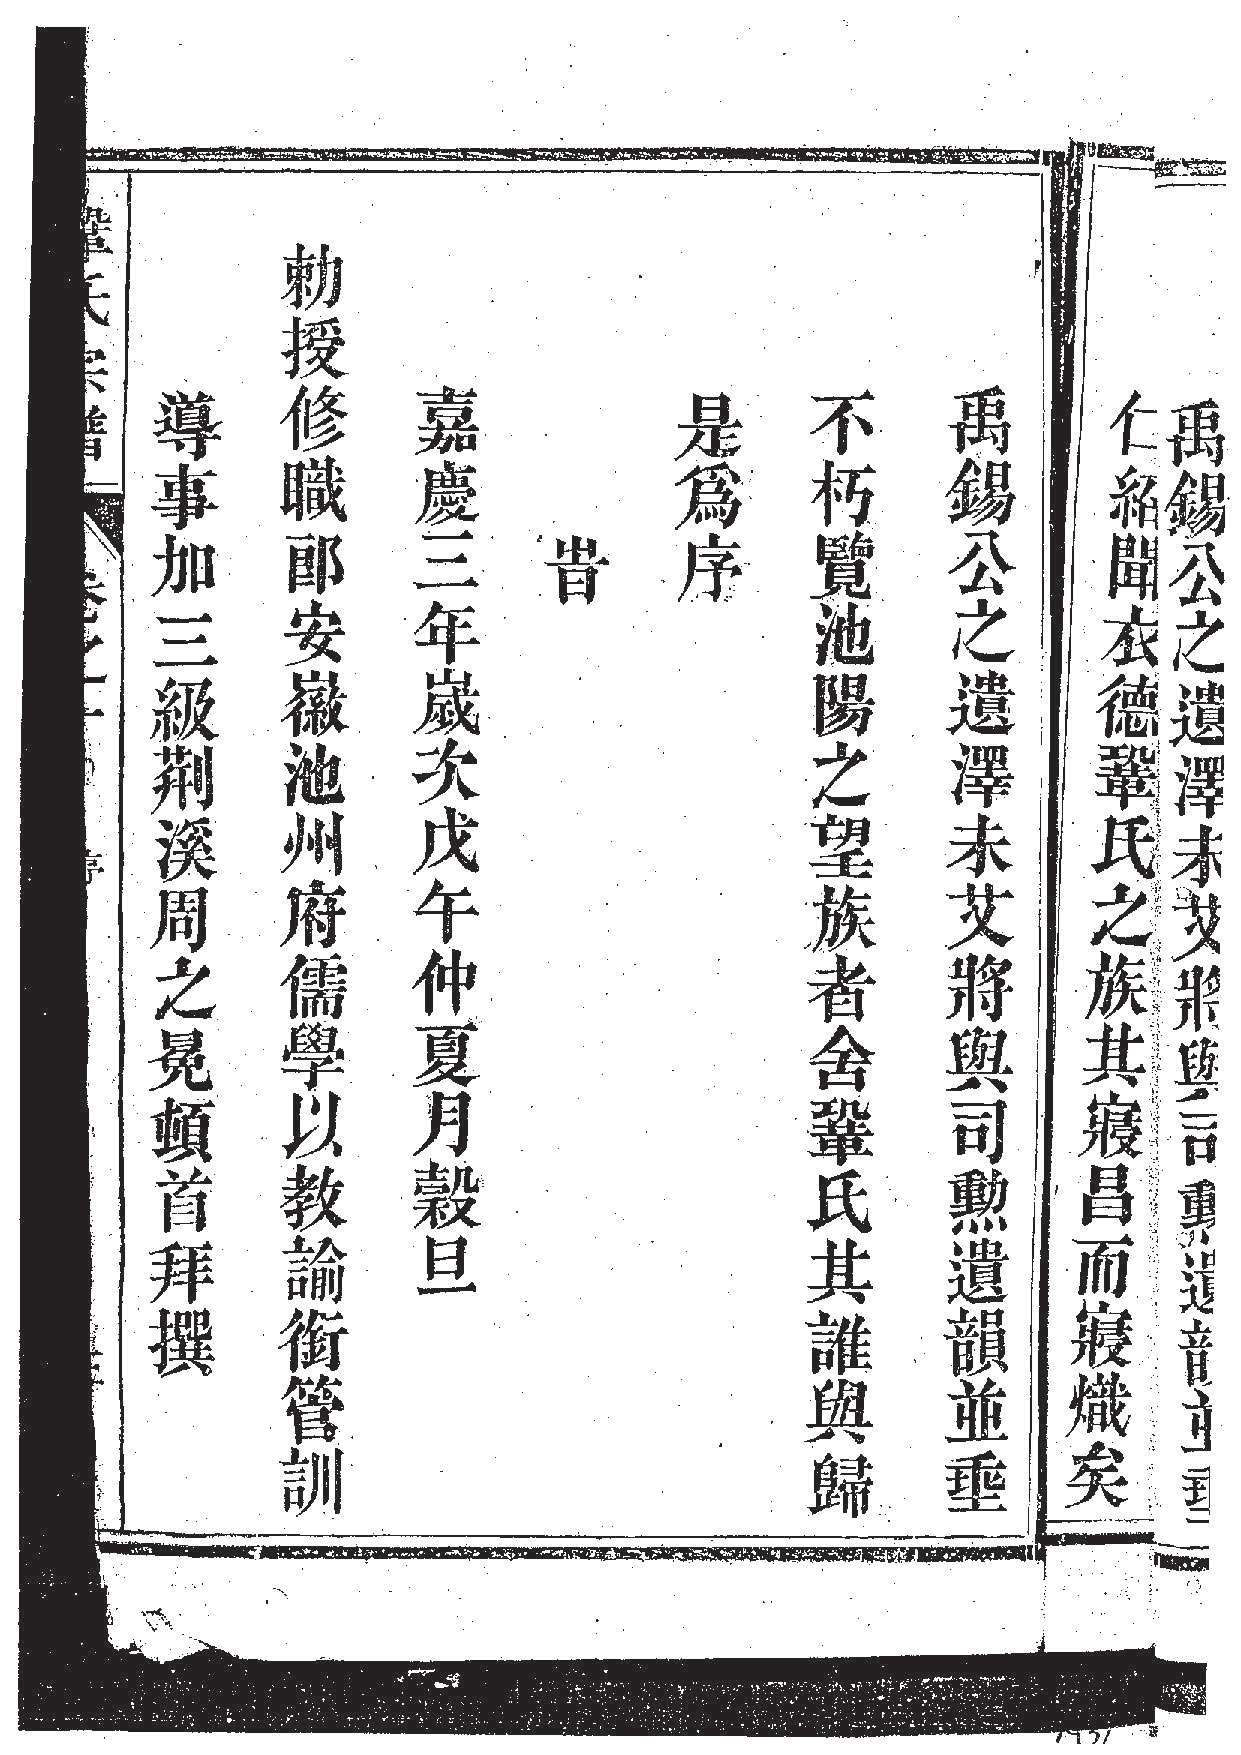 禹錫公之遺澤未艾將與司勳遺韻並垂
仁紹聞衣德鞏氏之族其寖昌而寖熾矣
禹錫公之遺澤未艾將與司勳遺韻並垂
不朽覽池陽之望族者舍鞏氏其誰與歸
是爲序
旹
嘉慶三年歲次戊午仲夏月穀旦
勅授修職郎安徽池州府儒學以教諭銜管訓
導事加三級荆溪周之冕頓首拜撰
鞏氏宗譜 卷之 序